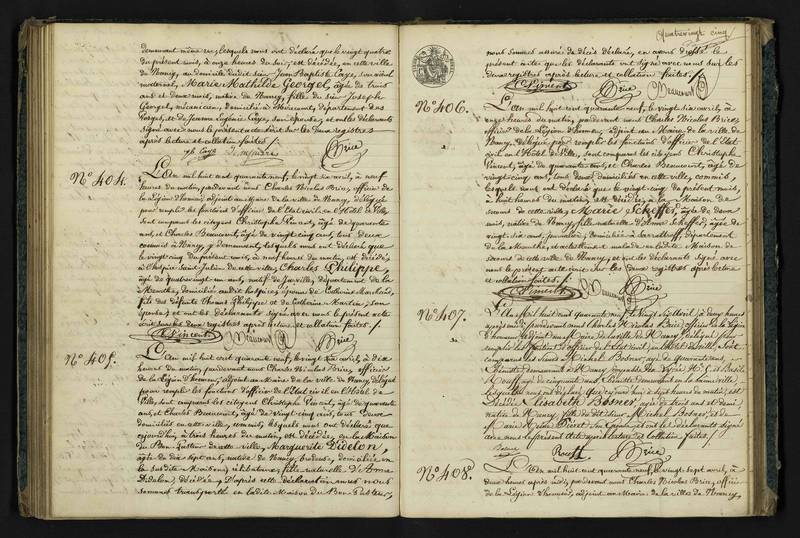 demeurant même rue, lesquels nous ont déclaré que le vingt quatre
du présent mois, à onze heures du soir, est décédée, en cette ville
de Nancy, au domicile dudit sieur Jean Baptiste Caye, son aïeul
maternel, Marie Mathilde Georgel, âgée de trois
ans et deux mois, native de Nancy, fille du sieur Joseph
Georgel, mécanicien, domicilié à département des
Vosges, et de Jeanne Eugénie Caye, son épouse, et ont les déclarants
signé avec nous le présent acte écrit sur les deux registres
après lecture et collation faites. /.
Brice
N.º 404.
L'an mil huit cent quarante neuf, le vingt six avril, à neuf
heures du matin, pardevant nous Charles Nicolas Brice, officier de
la Légion d'honneur, adjoint au Maire de la ville de Nancy, délégué
pour remplir les fonctions d'officier de l'Etat civil, en l'Hôtel de Ville,
sont comparus les citoyens Christophe Vincent, âgé de quarante
ans, et Charles Beaucourt, âgé de vingt cinq ans, tous deux
commis à Nancy, y demeurant, lesquels nous ont déclaré que
le vingt cinq du présent mois, à neuf heures du matin, est décédé,
à l'hospice Saint Julien de cette ville, Charles Philippe,
âgé de quatre vingt un ans, natif de département de la
Meurthe, domicilié audit hospice, époux de Catherine
fils des défunts Thomas Philippe et de Catherine Martin, son
épouse; et ont les déclarants signé avec nous le présent acte
écrit sur les deux registres après lecture et collation faites. /.
C Vincent Beaucourt Brice
N.º 405.
L'an mil huit cent quarante neuf, le vingt six avril, à dix
heures du matin, pardevant nous Charles Nicolas Brice, officier
de la Légion d'honneur, adjoint au Maire de la ville de Nancy, délégué
pour remplir les fonctions d'officier de l'Etat civil en l'Hôtel de
Ville, sont comparus les citoyens Christophe Vincent, âgé de quarante
ans, et Charles Beaucourt, âgé de vingt cinq ans, tous deux
domiciliés en cette ville, commis, lesquels nous ont déclaré que
aujourd'hui, à trois heures du matin, est décédée, en la Maison
du Bon Pasteur de cette ville, Marguerite Didelon,
âgée de dix sept ans, native de Nancy, brodeuse, domiciliée en
la susdite Maison, célibataire, fille naturelle d'Anne
Didelon, décédée. D'après cette déclaration nous nous
sommes transporté en ladite Maison du Bon Pasteur,
Quatrevingt cinq
nous sommes assuré du décès déclaré, en avons dressé le
présent acte que les déclarants ont signé avec nous sur les
deux registres après lecture et collation faites. /.
C Vincent Brice Beaucourt
N.º 406.
L'an mil huit cent quarante neuf, le vingt six avril, à
onze heures du matin, pardevant nous Charles Nicolas Brice,
officier de la Légion d'honneur, adjoint au Maire de la ville de
Nancy, délégué pour remplir les fonctions d'officier de l'Etat
civil, en l'Hôtel de Ville, sont comparus les citoyens Christophe
Vincent, âgé de quarante ans, et Charles Beaucourt, âgé de
vingt cinq ans, tous deux domiciliés en cette ville, commis,
lesquels nous ont déclaré que le vingt cinq du présent mois,
à huit heures du matin, est décédée, à la Maison de
secours de cette ville, Marie Scheffer, âgée de deux
mois, native de Nancy, fille naturelle d'Anne Scheffer, âgée de
vingt six ans, journalière, domiciliée à département
de la Meurthe, et actuellement malade en ladite Maison de
secours de cette ville de Nancy, et ont les déclarants signé avec
nous le présent acte écrit sur les deux registres après lecture
et collation faites. /.
C Vincent Beaucourt Brice
N.º 407.
L'an mil huit cent quarante neuf, le vingt six avril, à deux heures
après midi, pardevant nous Charles Nicolas Brice, officier de la Légion
d'honneur, adjoint au Maire de la ville de Nancy, délégué pour
remplir les fonctions d'officier de l'Etat civil, en l'Hôtel de ville, sont
comparus les sieurs Michel Bosner, âgé de quarante ans,
demeurant à Nancy
âgé de cinquante ans, demeurant en la même ville,
lesquels nous ont déclaré que à huit heures du matin, est
décédée Elisabeth Bosner, âgée de trois ans et demi,
native de Nancy, fille dudit sieur Michel Bosner, et de
Marie son épouse; et ont les déclarants signé
avec nous le présent acte après lecture et collation faites.
Bosner Brice
N.º 408.
L'an mil huit cent quarante neuf, le vingt sept avril, à
deux heures après midi, pardevant nous Charles Nicolas Brice, officier
de la Légion d'honneur, adjoint au Maire de la ville de Nancy,